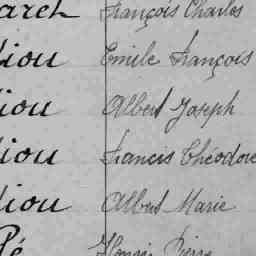 arch François Charles
liou Emile François
liou Albert Joseph
liou Francis Théodore
liou Albert Marie
Ré Henri Pierre